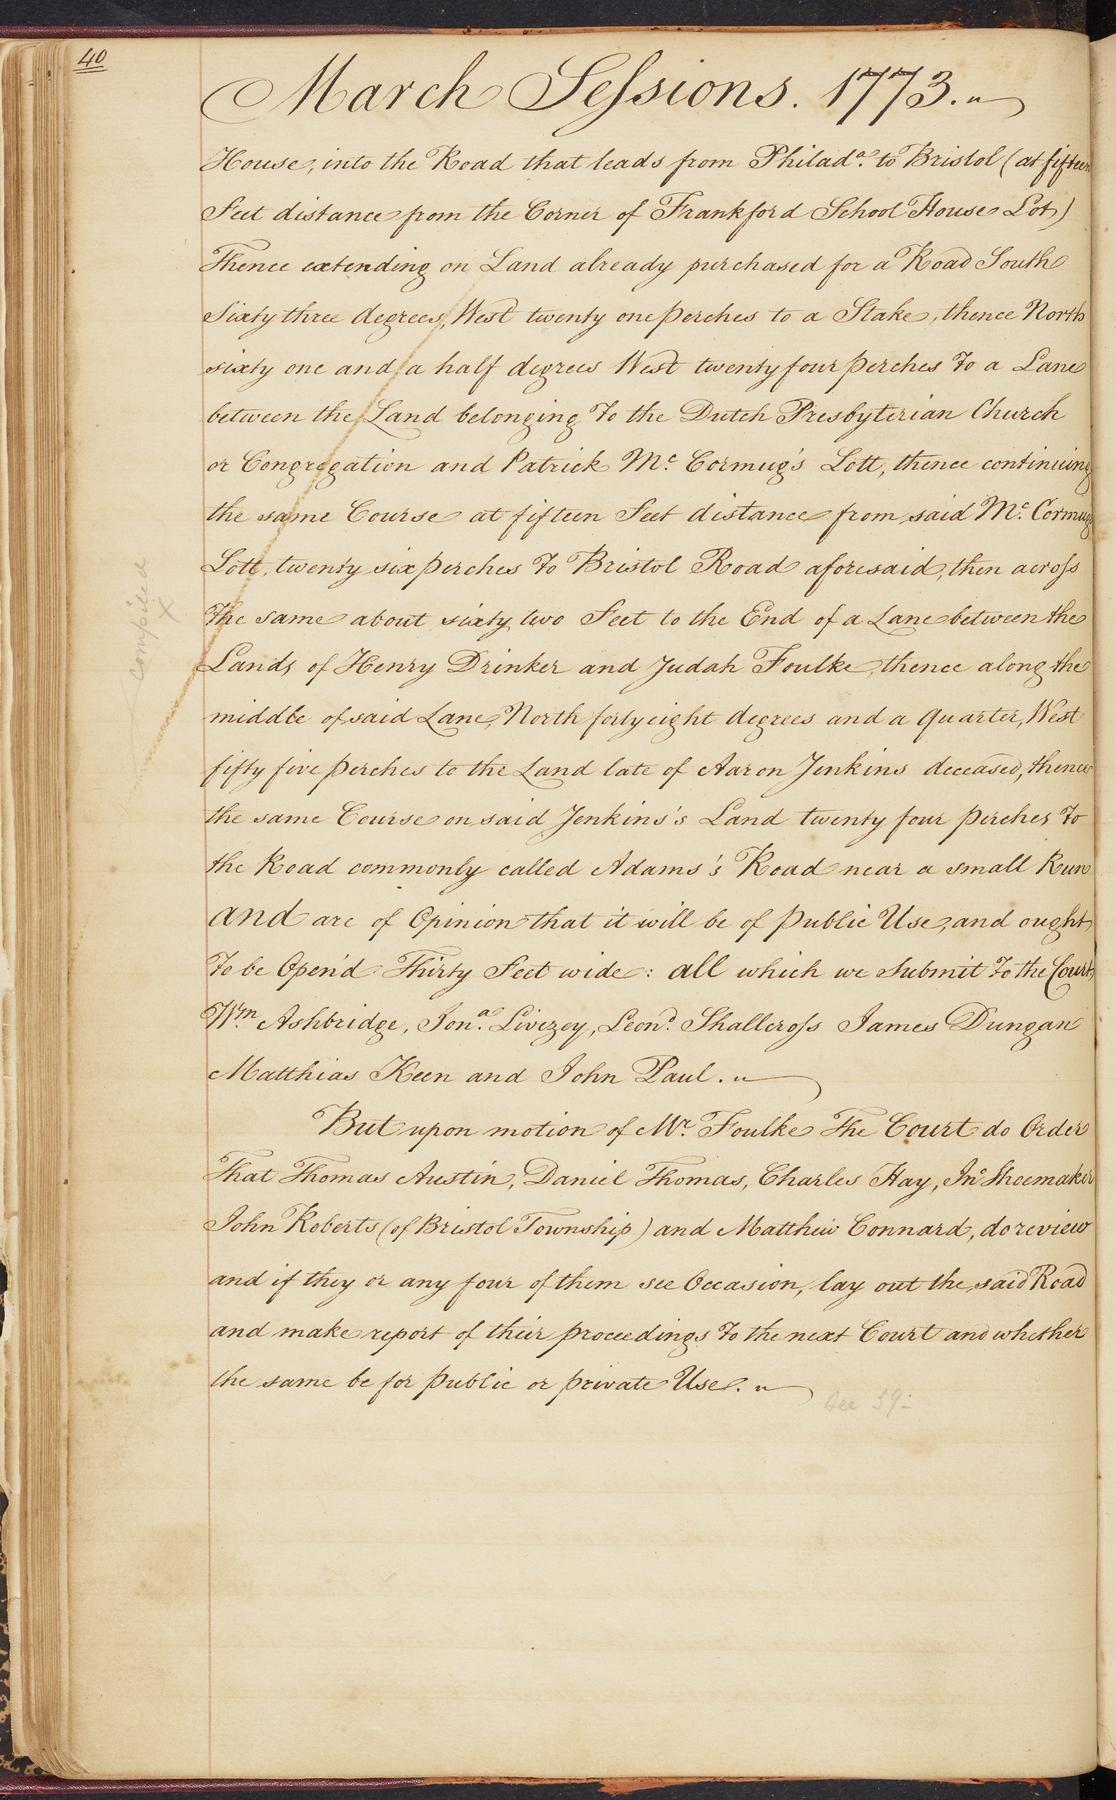 40
March Seſsions. 1773.
House, into the Road that leads from Philada. to Bristol (at fifteen
Feet distance from the Corner of Frankford School House Lot)
Thence extending on Land already purchased for a Road South
Sixty three degrees, West twenty one perches to a Stake, thence North
sixty one and a half degrees West twenty four perches To a Lane
between the Land belonging To the Dutch Presbyterian Church
or Congregation and Patrick Mc. Cormug's Lott, thence continuing
the same Course at fifteen Feet distance from said Mc. Cormugs
Lott, twenty six perches To Bristol Road aforesaid, then acroſs
The same about sixty two Feet to the End of a Lane between the
Lands of Henry Drinker and Judah Foulke, thence along the
middle of said Lane, North forty eight degrees and a quarter, West
fifty five perches to the Land late of Aaron Jenkins deceased, thence
the same Course on said Jenkins's Land twenty four perches To
the Road commonly called Adams's Road near a small Run
and are of Opinion that it will be of public Use, and ought
To be Open'd Thirty Feet wide: all which we Submit To the Court
Wm. Ashbridge, Jona. Livezey, Leond. Shallcroſs James Dungan
Matthias Keen and John Paul.
But upon motion of Mr. Foulke The Court do Order
That Thomas Austin, Daniel Thomas, Charles Hay, Jno. Shoemaker
John Roberts (of Bristol Township) and Matthew Connard, do review
and if they or any four of them see Occasion, lay out the said Road
and make report of their proceedings To the next Court and whether
the same be for public or private Use.
See 59
compiled
X